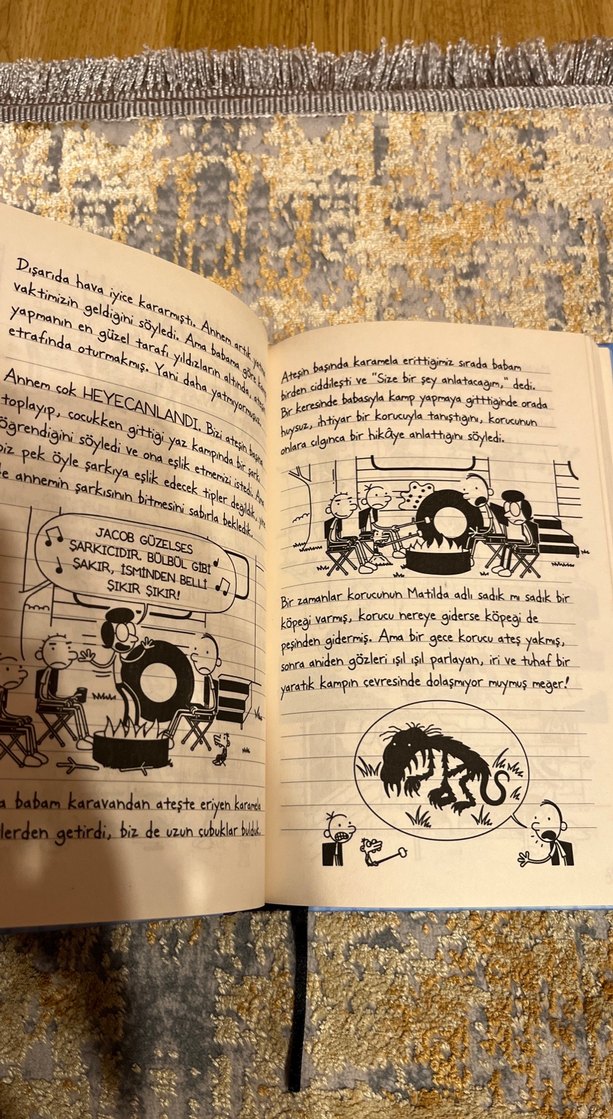 Dışarıda hava iyice kararmıştı. Annem artık
vaktimizin geldiğini söyledi. Ama babama göre
yapmanın en güzel tarafı yıldızların altında,
etrafında oturmakmış. Yani daha yatmıyormuşuz.
Annem çok HEYECANLANDI. Bizi ateşin
toplayıp, çocukken gittiği yaz kampında bir şarkı
öğrendiğini söyledi ve ona eşlik etmemizi istedi. Ama
biz pek öyle şarkıya eşlik edecek tipler değildik,
annemin şarkısının bitmesini sabırla bekledik.
JACOB GÜZELSES
ŞARKICIDIR. BÜLBÜL GİBİ
ŞAKIR, İSMİNDEN BELLİ
ŞIKIR ŞIKIR!
babam karavandan ateşte eriyen karamela
getirdi, biz de uzun çubuklar bulduk.
Ateşin başında karamela erittiğimiz sırada babam
birden ciddileşti ve "Size bir şey anlatacağım," dedi.
Bir keresinde babasıyla kamp yapmaya gitttiğinde orada
huysuz, ihtiyar bir korucuyla tanıştığını, korucunun
onlara çılgınca bir hikÂye anlattığını söyledi.
Bir zamanlar korucunun Matilda adlı sadık mı sadık bir
köpeği varmış, korucu nereye giderse köpeği de
peşinden gidermiş. Ama bir gece korucu ateş yakmış,
sonra aniden gözleri ışıl ışıl parlayan, iri ve tuhaf bir
yaratık kampın çevresinde dolaşmıyor muymuş meğer!